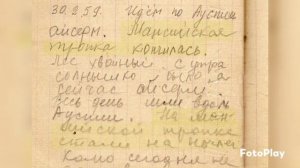 30.1.59. Идём по Ауспии
айсеры. Мансийская
тропка кончилась.
Лес хвойный. С утра
солнышко было, а
сейчас айсеры.
Весь день шли вдоль
Ауспии. На ман-
сийской тропке
стали на ночлег
Коля сегодня не
FotoPlay